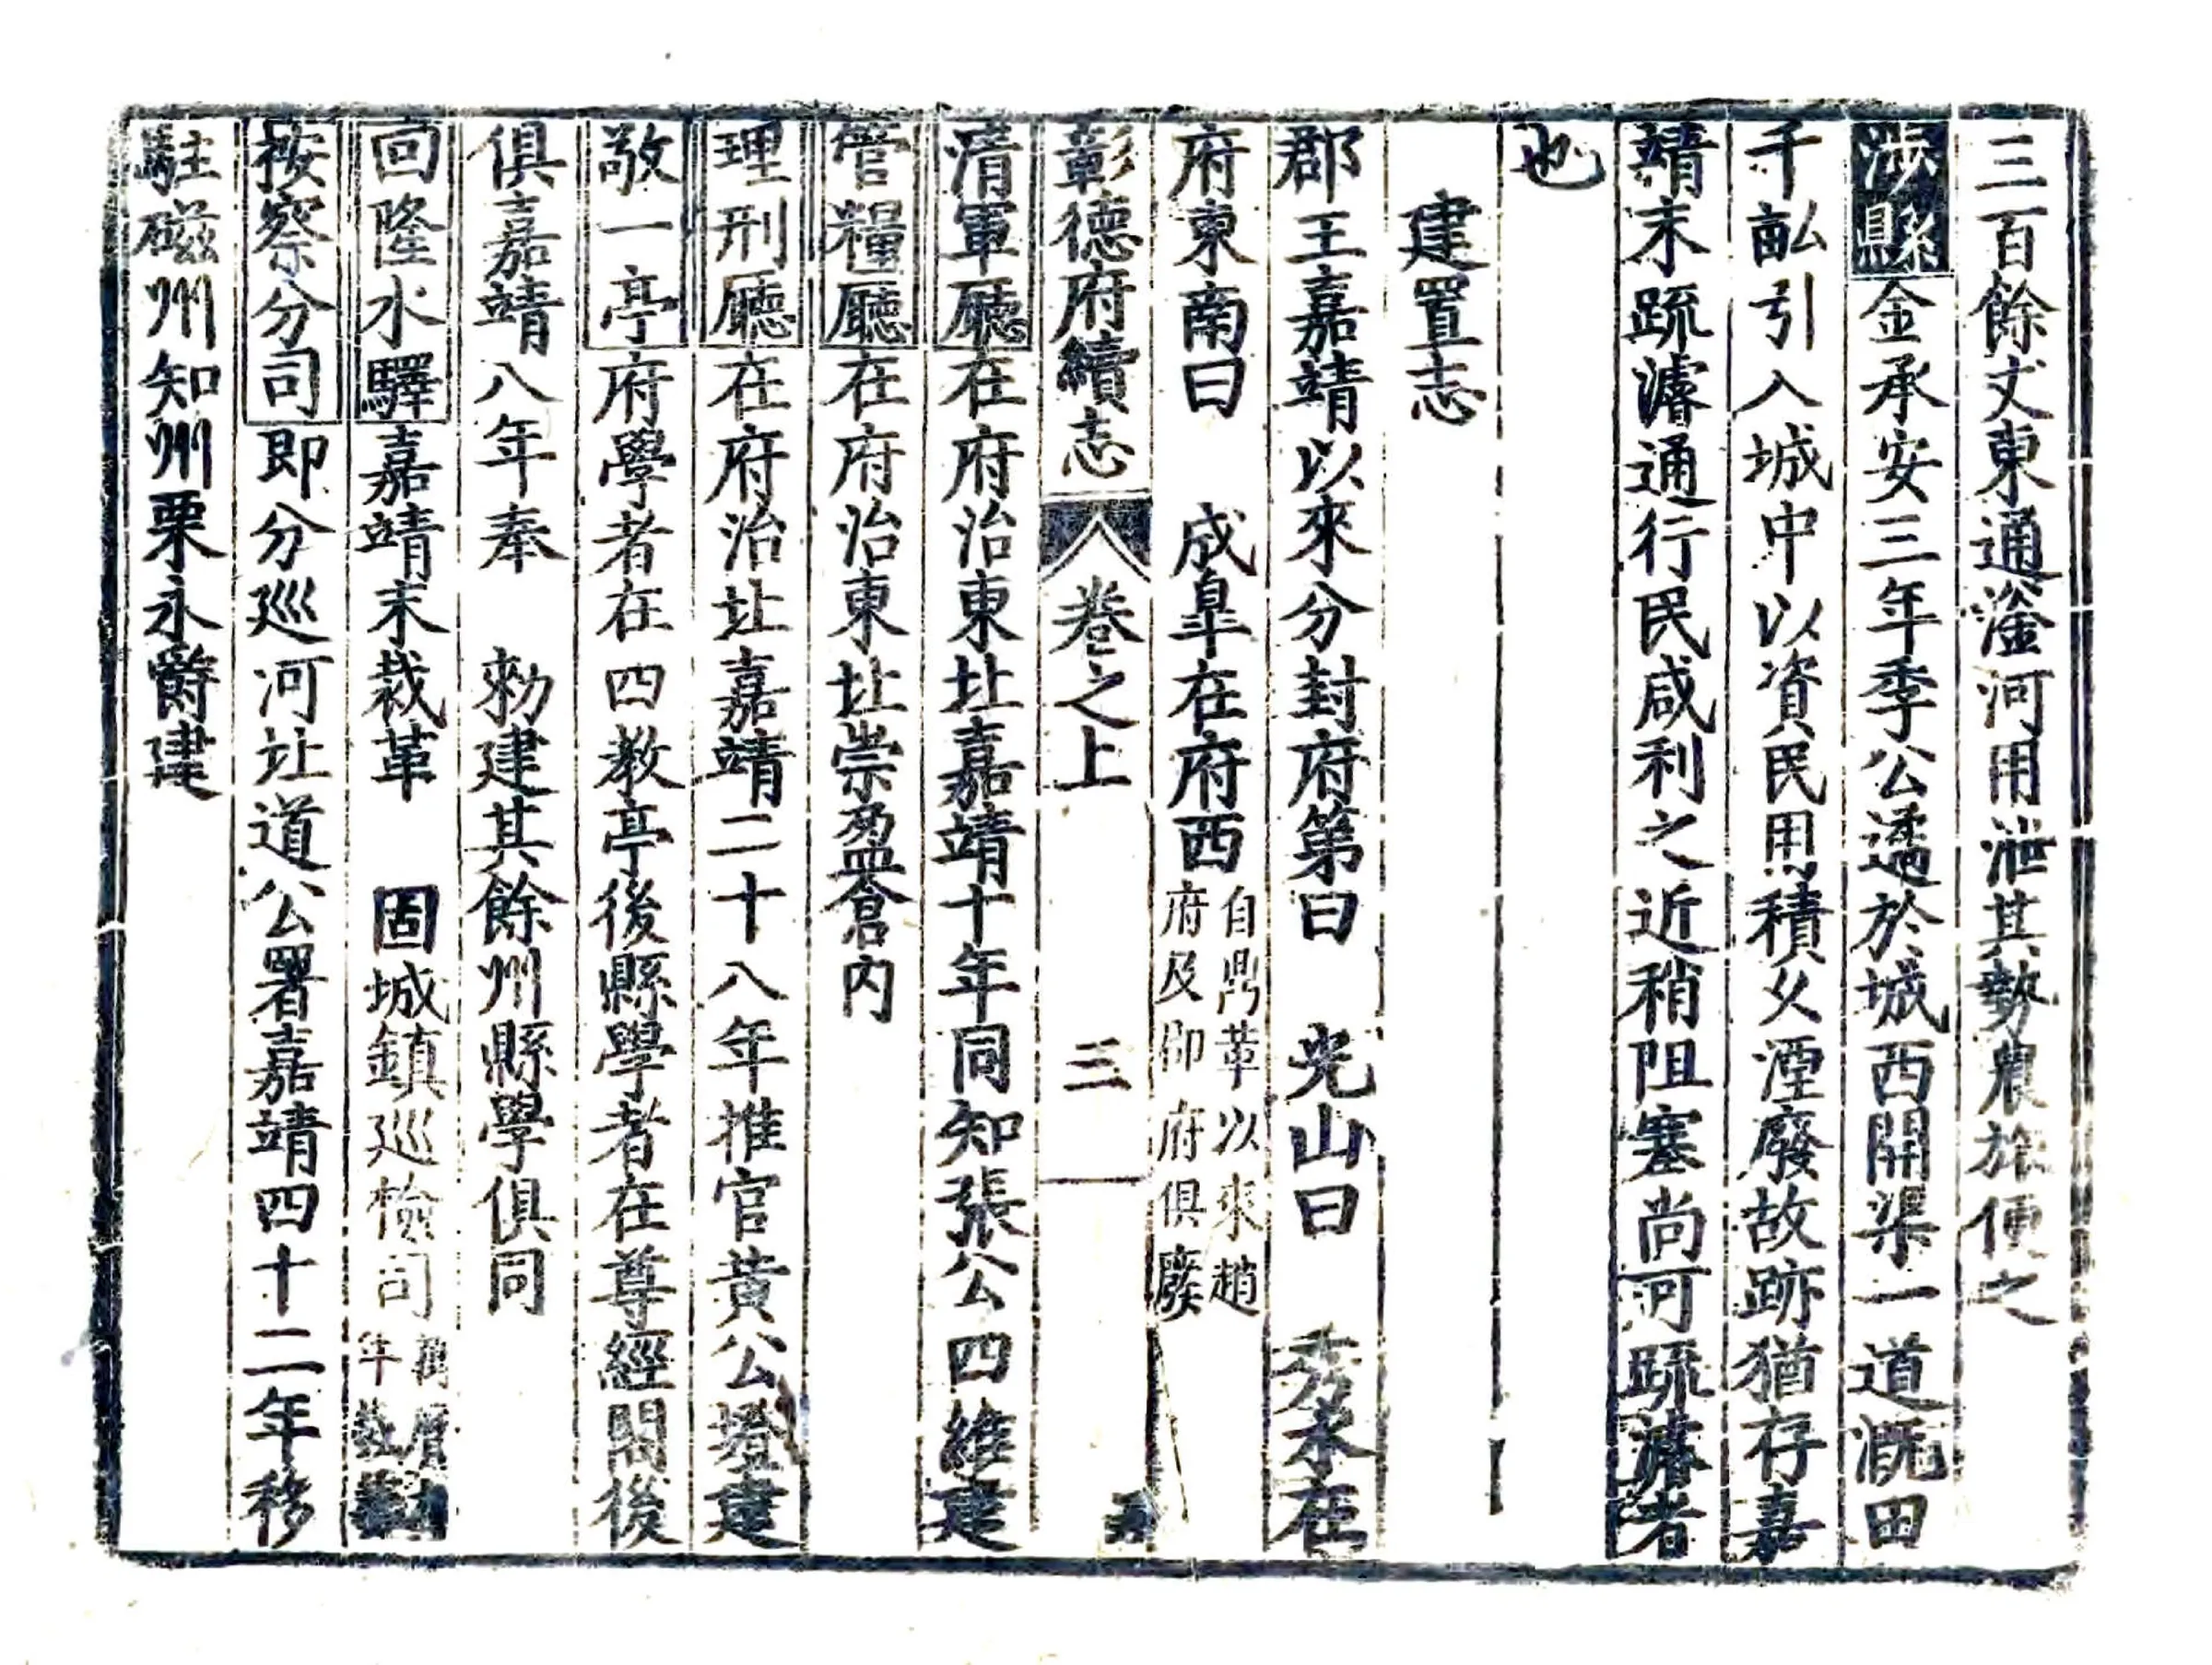 三百餘丈東通滏河用泄其勢農旅便之
涉縣金承安三年季公邁於城西開渠一道溉田
千畝引入城中以資民用積久湮廢故跡猶存嘉
靖末疏濬通行民咸利之近稍阻塞尚可疏濬者
也
建置志
郡王嘉靖以來分封府第曰 光山曰 秀水在
府東南曰 成皐在府西自鼎革以來趙
府及郡府俱廢
彰德府續志 卷之上 三
清軍廳在府治東北嘉靖十年同知張公四維建
管糧廳在府治東北崇盈倉內
理刑廳在府治北嘉靖二十八年推官黃公建
敬一亭府學者在四教亭後縣學者在尊經閣後
俱嘉靖八年奉 勑建其餘州縣學俱同
回隆水驛嘉靖末裁革 固城鎮巡檢司
年
按察分司即分巡河北道公署嘉靖四十二年移
駐磁州知州栗永爵建